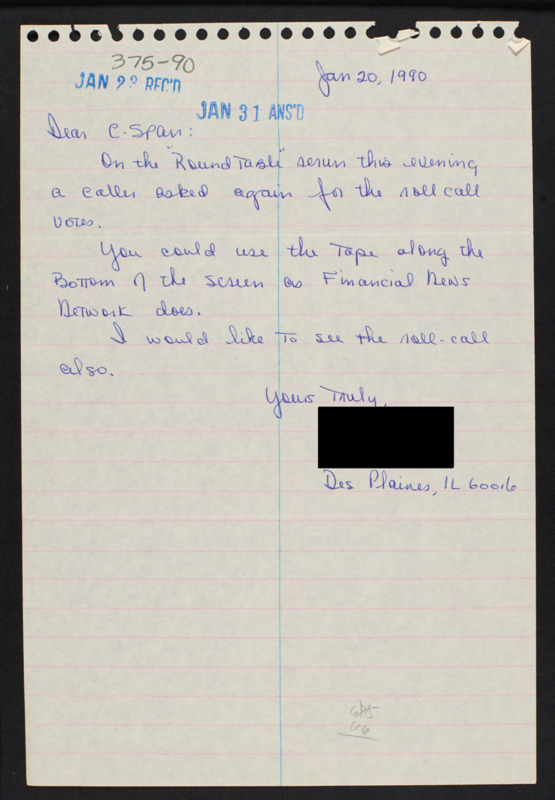 375-90
JAN 29 REC'D
Jan 20, 1990
JAN 31 ANS'D
Dear C-Span:
On the "RoundTable" rerun this evening
a caller asked again for the roll call
votes.
You could use the Tape along the
Bottom of the screen as Financial News
Network does.
I would like to see the roll-call
also.
Yours Truly,
Des Plaines, IL 60016
66